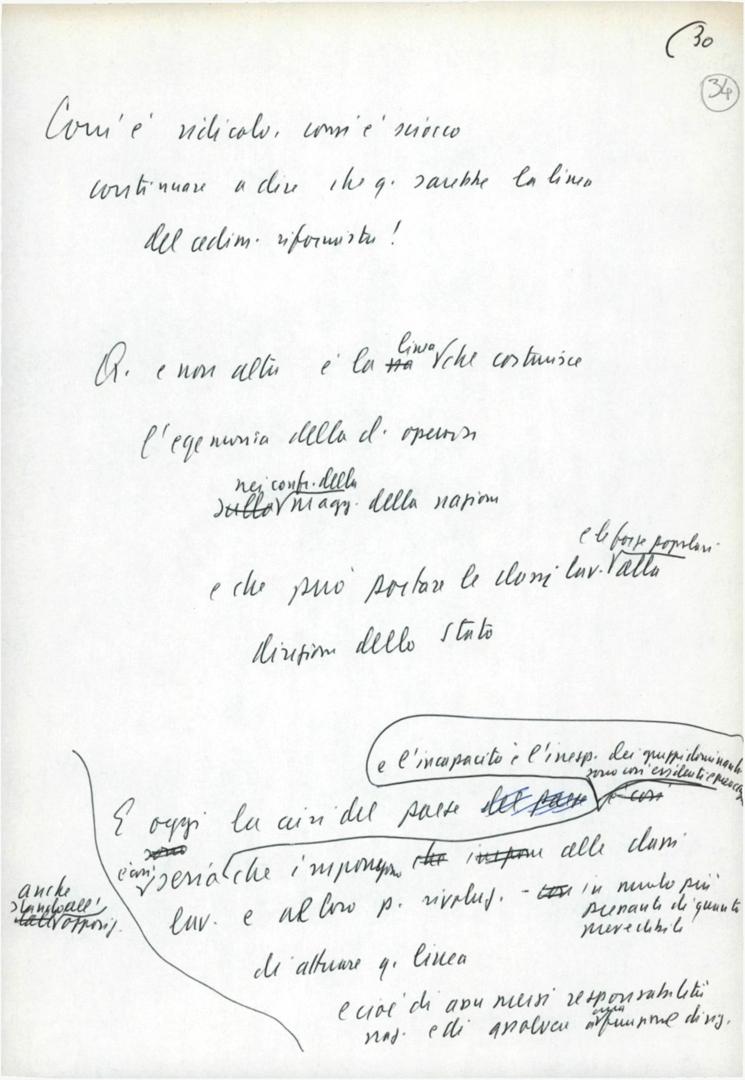 30
34
Com'è ridicolo, com'è sciocco
continuare a dire che q. sarebbe la linea
del cedim. riformista!
Q. e non altra è la linea che costruisce
l'egemonia della cl. operaia
nei confr. della
sulla magg. della nazione
e le forze popolari
e che può portare le classi lav. alla
direzione dello Stato
e l'incapacità e l'inesp. dei gruppi dominanti
sono così evidenti e
E oggi la crisi del paese del paese è così
sono
è così seria che impongono che impone alle classi
anche
stando all'
dall'opposiz.
lav. e al loro p. rivoluz. - con in modo più
pressante di quanto
prevedibile
di attuare q. linea
e cioè di assumersi responsabilità
naz. e di assolvere una funzione dirig.